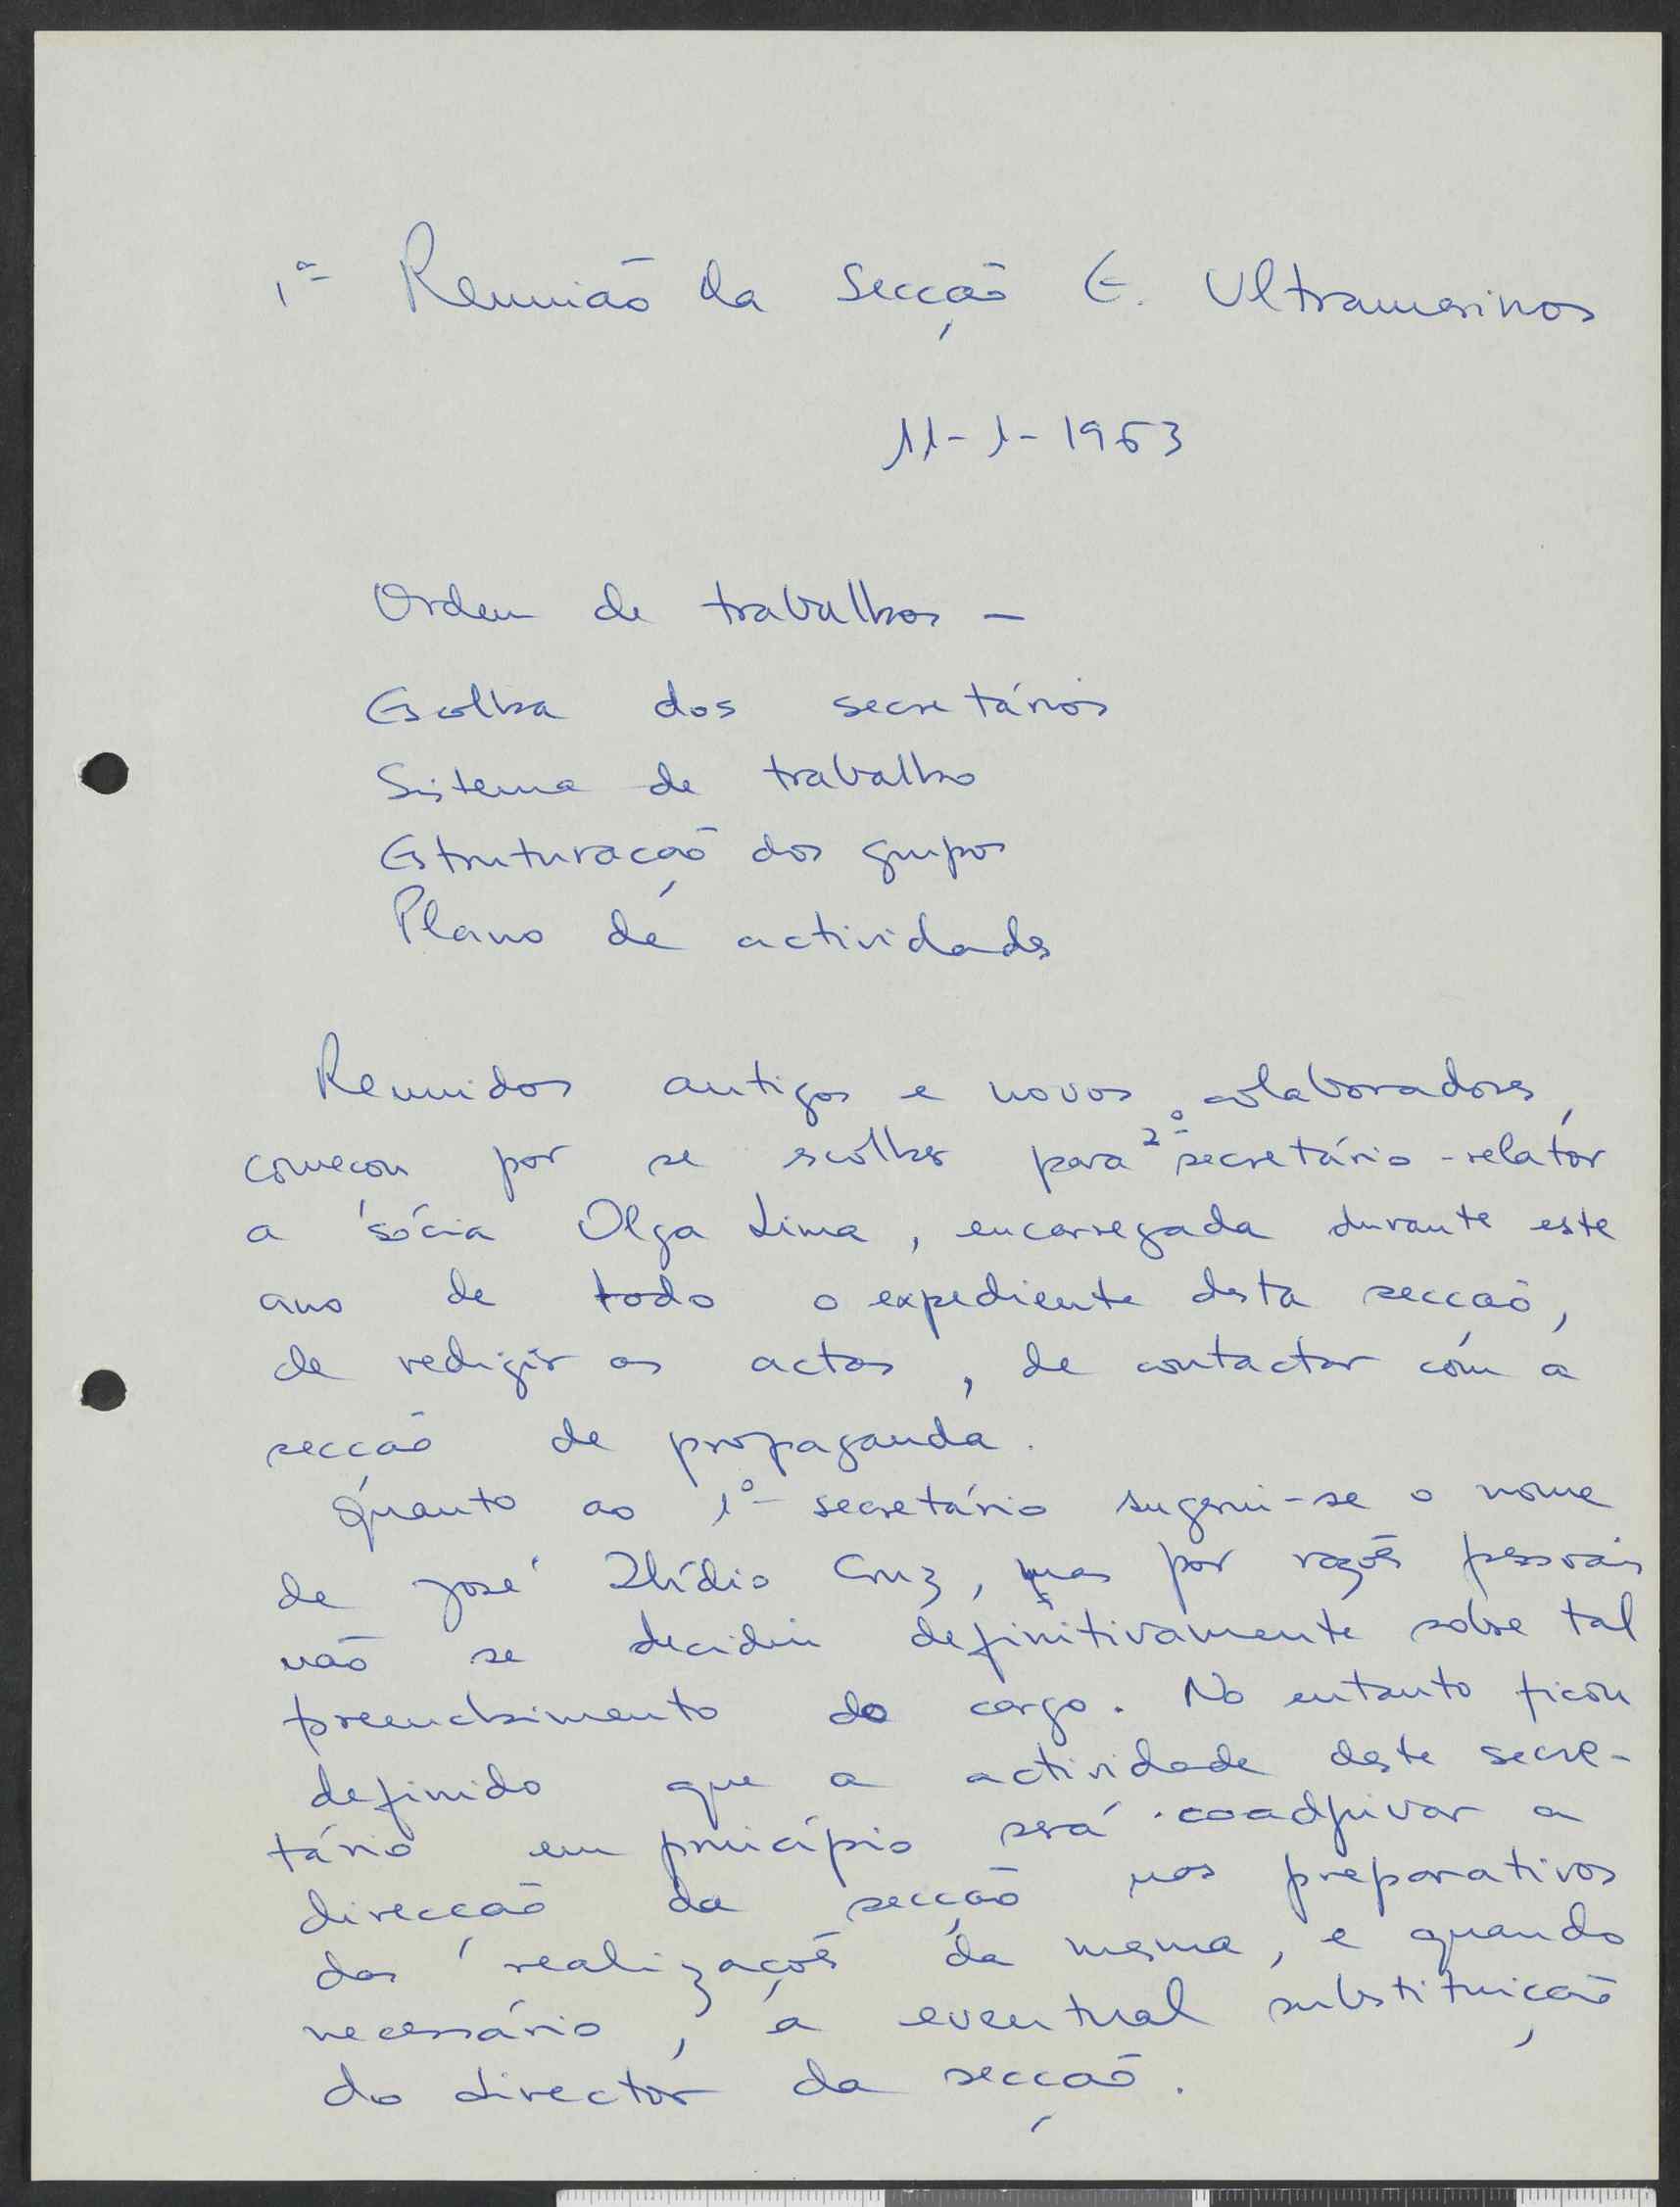 1ª Reunião da Secção E. Ultramarinos
11-1-1963
Ordem de trabalhos -
Escolha dos secretários
Sistema de trabalho
Estruturação dos grupos
Plano de actividades
Reunidos antigos e novos colaboradores,
começou por se escolher para 2º secretário-relator
a sócia Olga Lima, encarregada durante este
ano de todo o expediente desta secção,
de redigir as actas, de contactar com a
secção de propaganda.
Quanto ao 1º secretário sugeriu-se o nome
de José Ilídio Cruz, mas por razões pessoais
não se decidiu definitivamente sobre tal
preenchimento do cargo. No entanto ficou
definido que a actividade deste secre-
tário em princípio será coadjuvar a
direcção da secção nos preparativos
das realizações da mesma, e quando
necessário, a eventual substituição
do director da secção.